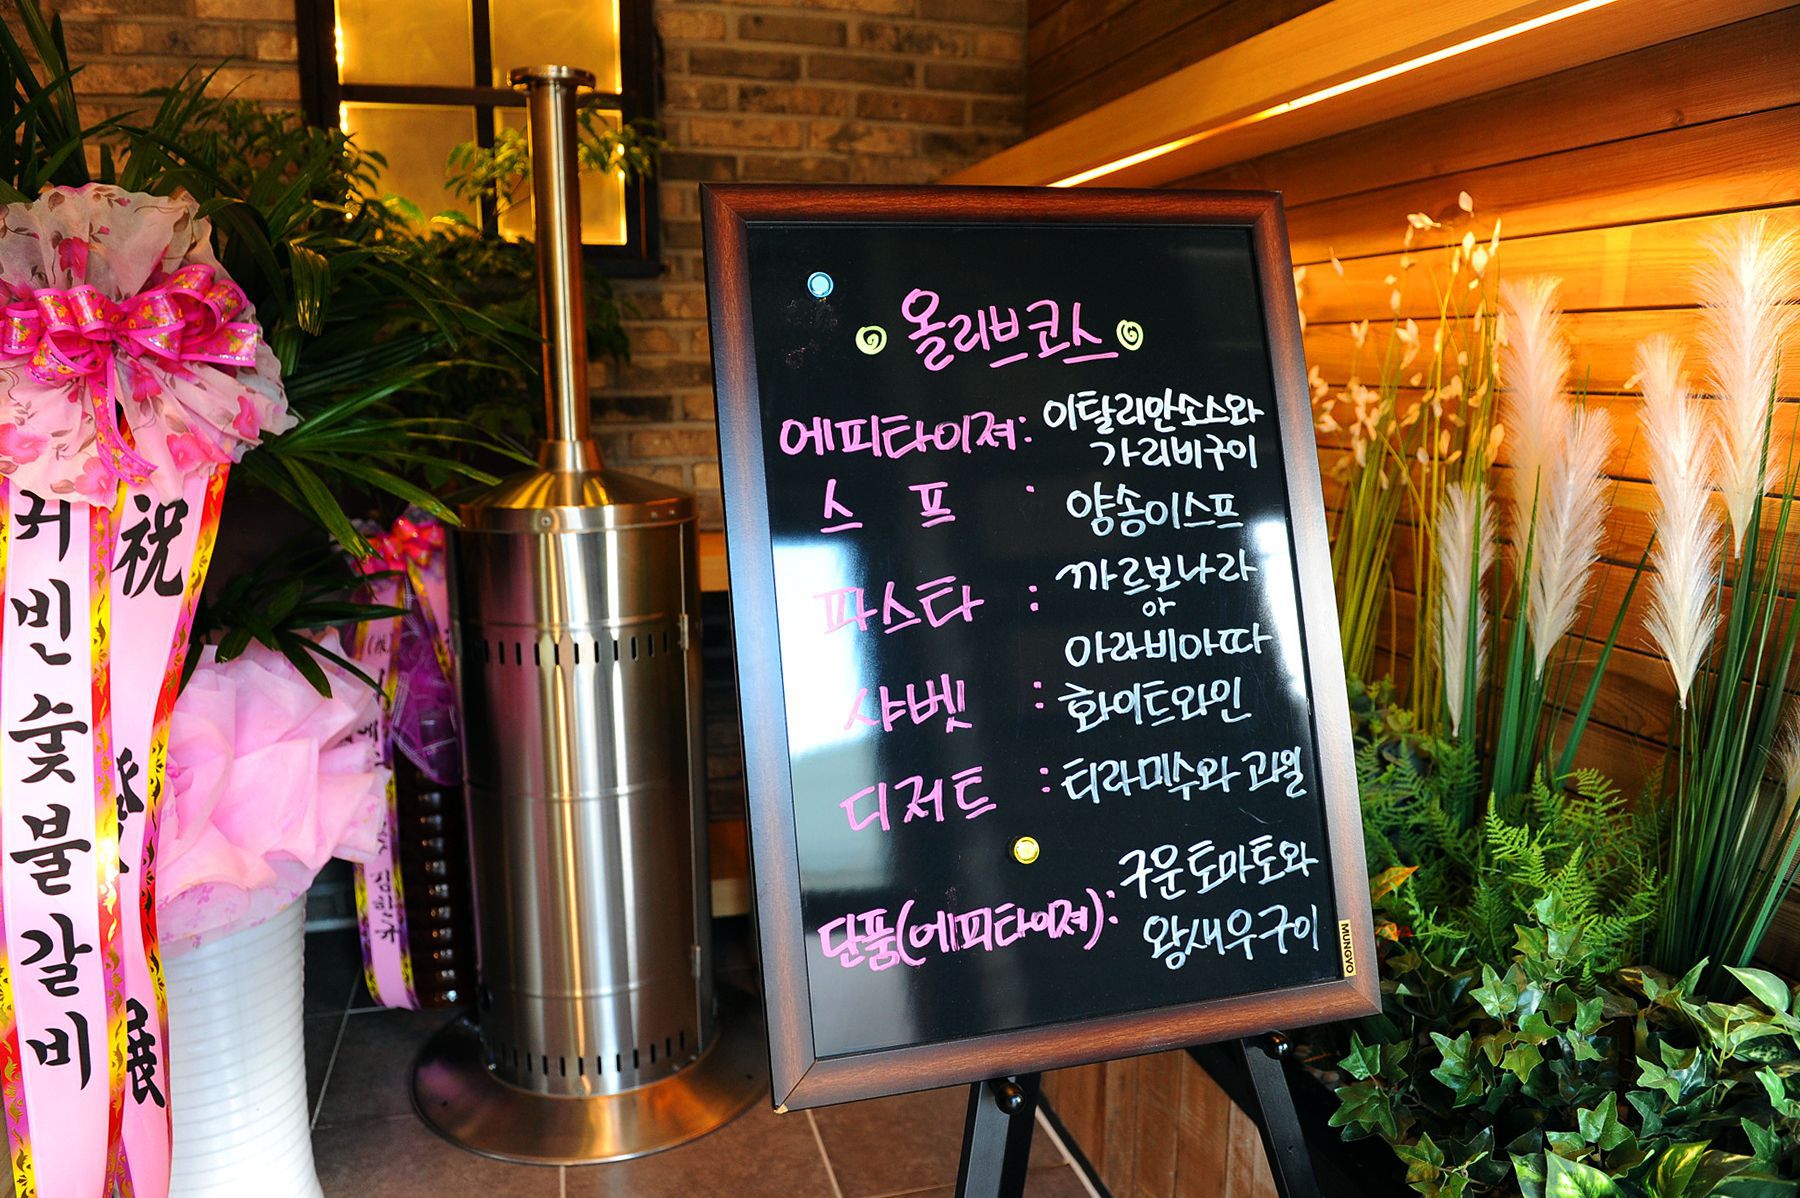 올리브코스
에피타이져: 이탈리안소스와
가리비구이
스 프 : 양송이스프
파스타 : 까르보나라
or
아라비아따
샤벳 : 화이트와인
디저트 : 티라미수와 과일
단품(에피타이져): 구운토마토와
왕새우구이
MUNGYO
커빈숯불갈비
祝
發
展